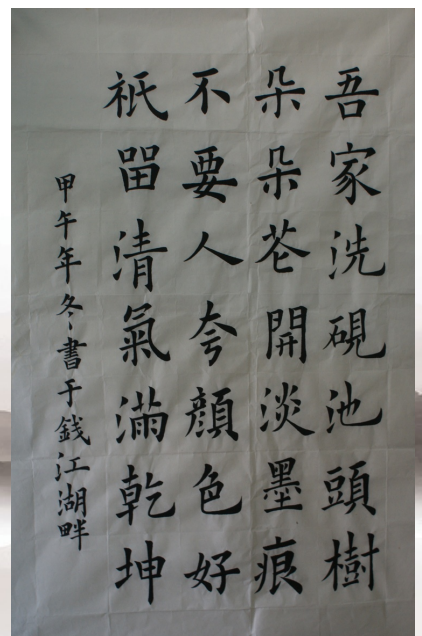 吾家洗硯池頭樹
朵朵花開淡墨痕
不要人夸顏色好
祇留清氣滿乾坤
甲午年冬書于錢江湖畔